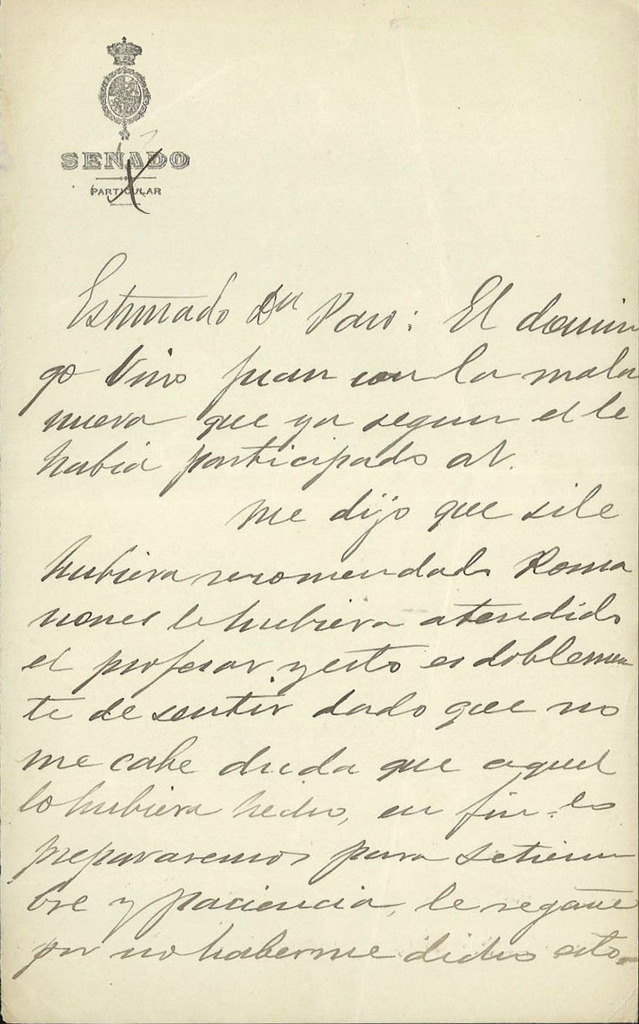 SENADO
PARTICULAR
Estimado Dn Paco: El domin
go vino Juan con la mala
nueva que ya segun el le
habia participado a V.
Me dijo que si le
hubiera recomendado Roma
nones le hubiera atendido
el profesor y esto es doblemen
te de sentir dado que no
me cabe duda que aquel
lo hubiera hecho, en fin lo
prepararemos para setiem
bre y paciencia, le regañé
por no haberme dicho esto